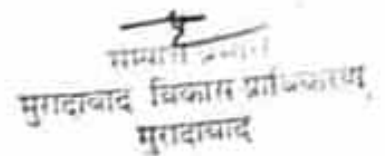 मुरादाबाद विकास प्राधिकरण,
मुरादाबाद